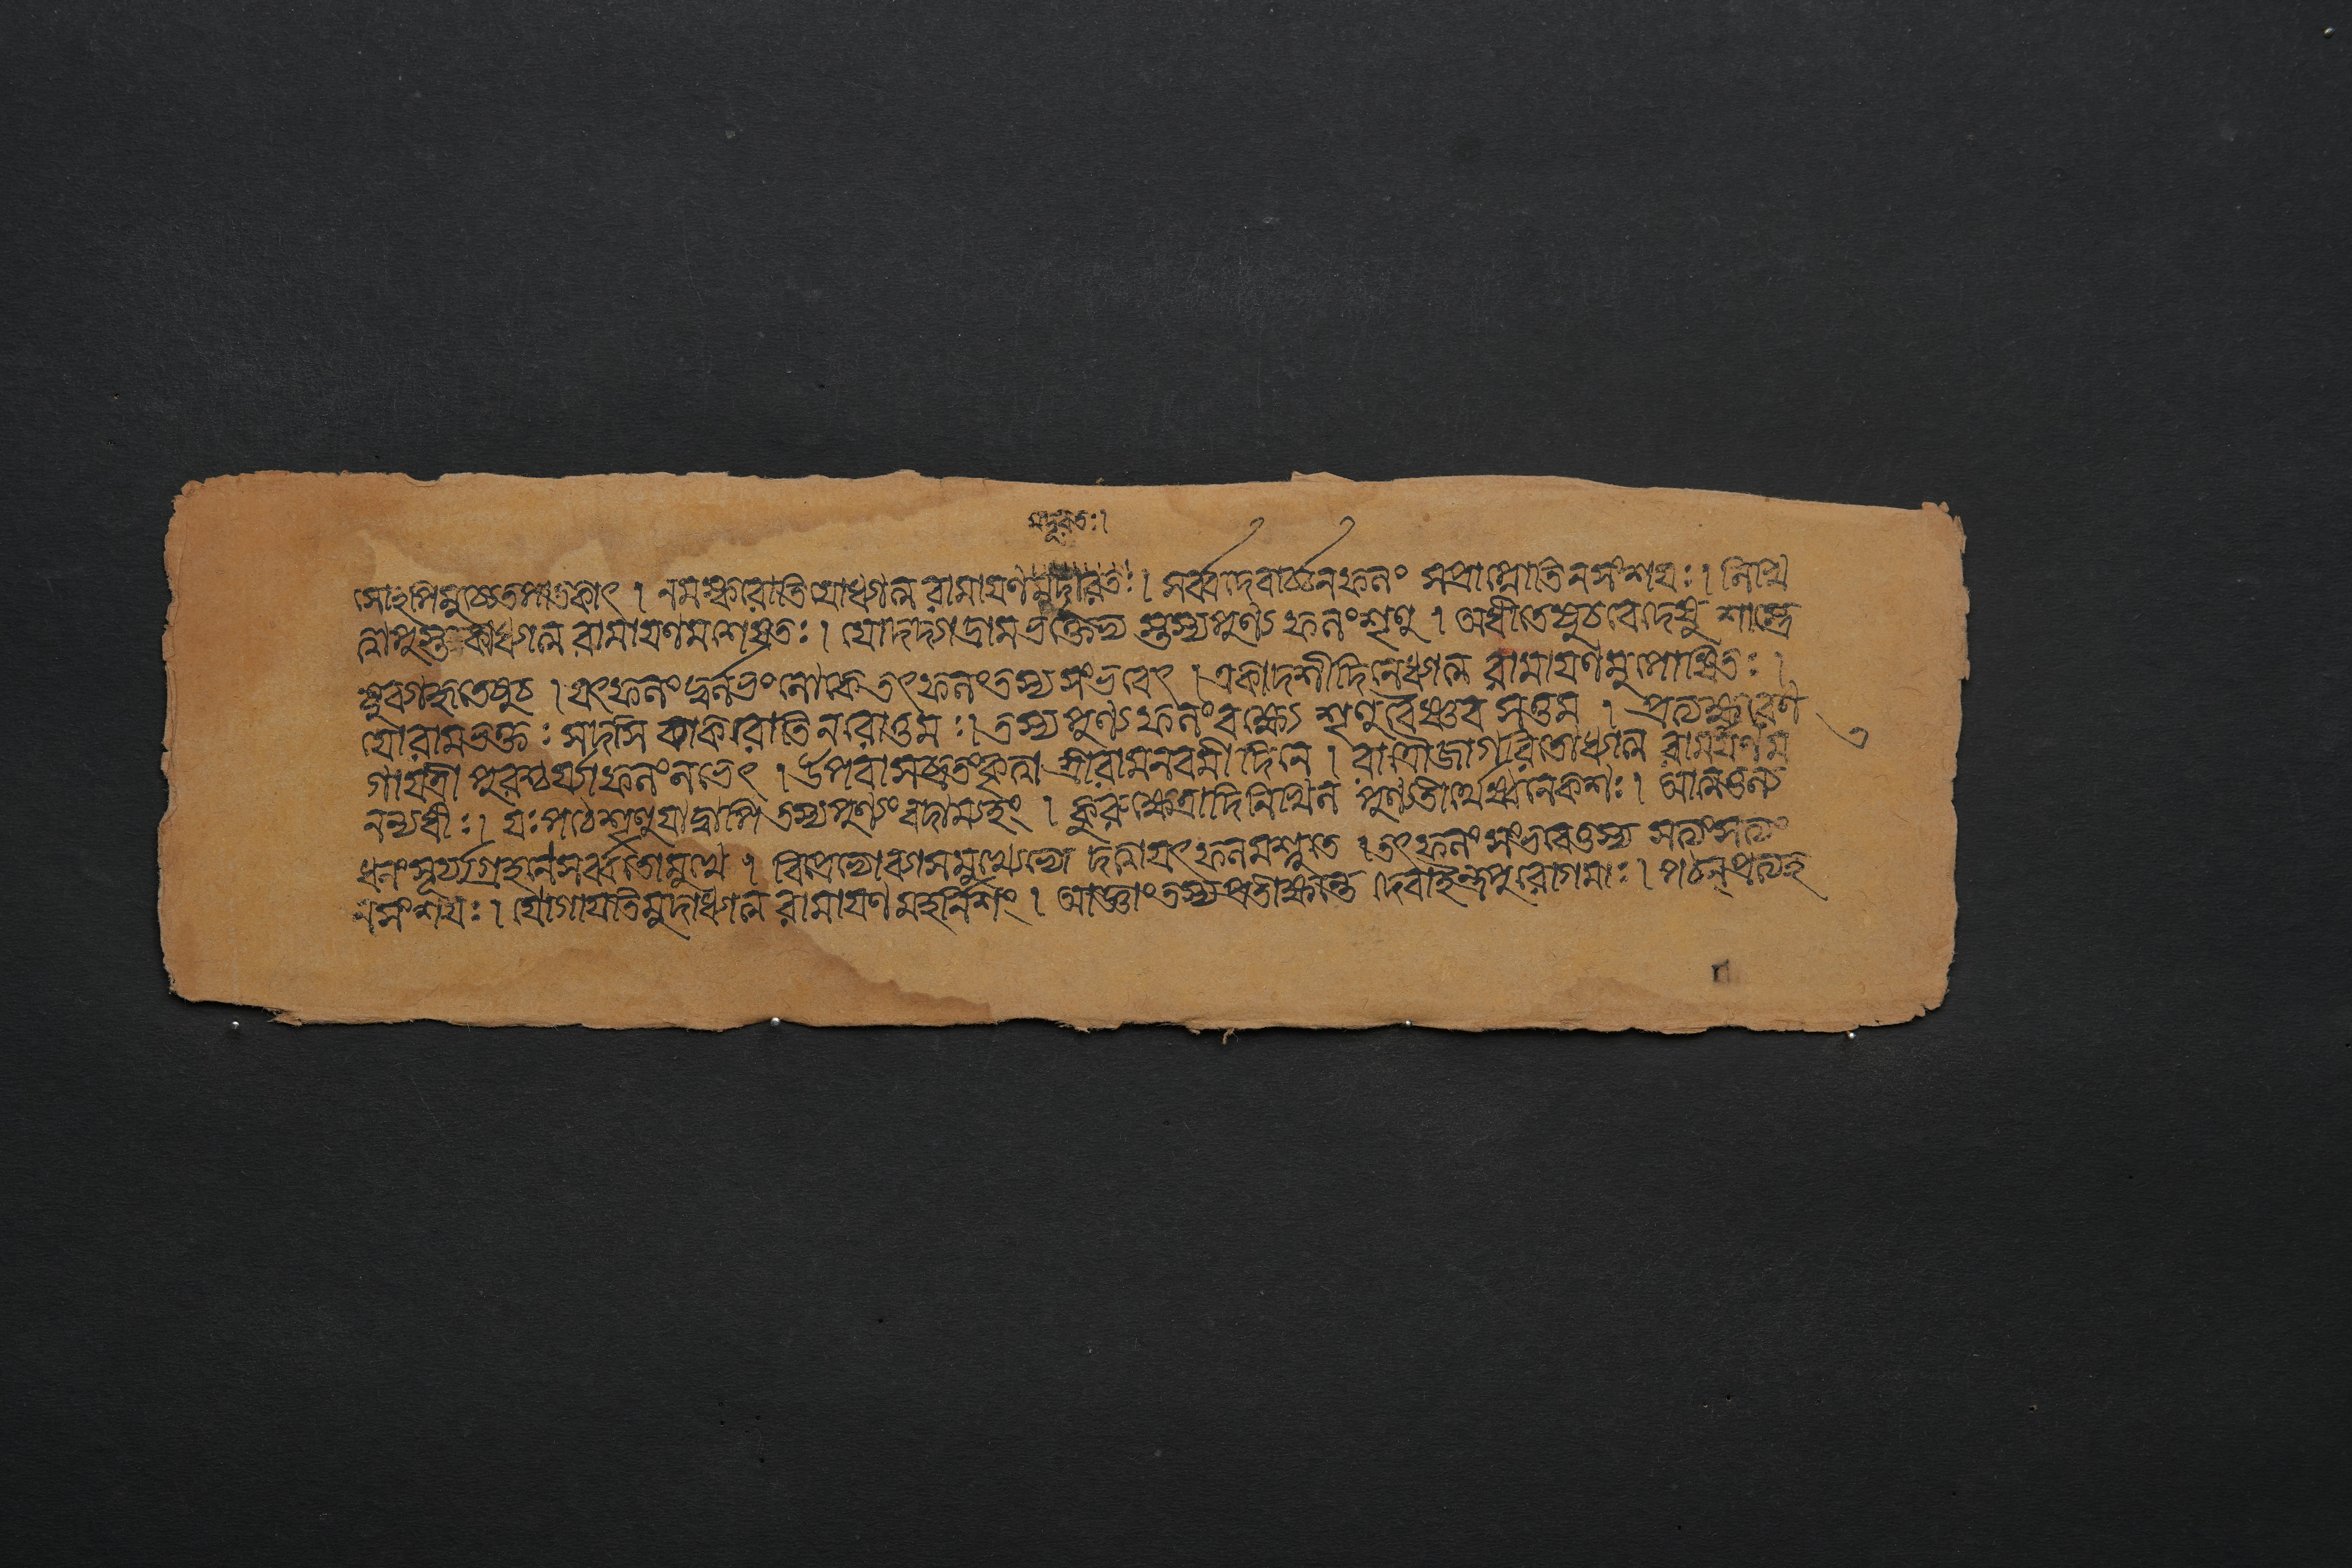 মদূরতঃ।
সোঽপিমুচ্যেতপাতকাৎ । নমস্করোতিযোধ্যাত্ম রামাযণমুদীরিতঃ। সর্ব্বদেবার্চ্চনফলং সপ্রাপ্নোতিনসংশযঃ। লিখি
ত্বাপুস্তকেধ্যাত্ম রামাযণমশেষতঃ। যোদদ্যাদ্রামভক্তেভ্য স্তস্যপুণ্যফলংশৃণু । অধীতেষুচবেদেষু শাস্ত্রে
ষুব্যাকৃতেষুচ । যৎফলংদুর্লভংলোকে তৎফলংতস্য সংভবেৎ । একাদশীদিনেধ্যাত্ম রামাযণমুপোষিতঃ।
যোরামভক্তঃ সদসি ব্যাকরোতিনরোত্তমঃ। তস্য পুণ্যফলংবক্ষ্যে শৃণুবৈষ্ণব সত্তম । প্রত্যক্ষরেণ
গাযত্রী পুরশ্চর্য্যাফলংলভেৎ । উপবাসব্রতংকৃত্বা শ্রীরামনবমীদিনে । রাত্রৌজাগরিতোধ্যাত্ম রামাযণম
নন্যধীঃ। যঃপঠেশৃণুযাদ্বাপি তস্যপুণ্যংবদাম্যহং । কুরুক্ষেত্রাদিনিখিল পুণ্যতীর্থেষ্বনেকশঃ। আত্মতুল্য
ধনংসূর্য্যগ্রহণেসর্ব্বতোমুখে । বিপ্রেভ্যোব্যাসমুখ্যেভ্যো দত্বাযৎফলমশ্নুতে । তৎফলংসংভবেত্তস্য সত্যংসত্যং
নসংশযঃ। যোগাযতিমুদাধ্যাত্ম রামাযণমহর্নিশং । আজ্ঞাংতস্যপ্রতীক্ষন্তে দেবাইন্দ্রপুরোগমাঃ। পঠন্প্রত্যহ